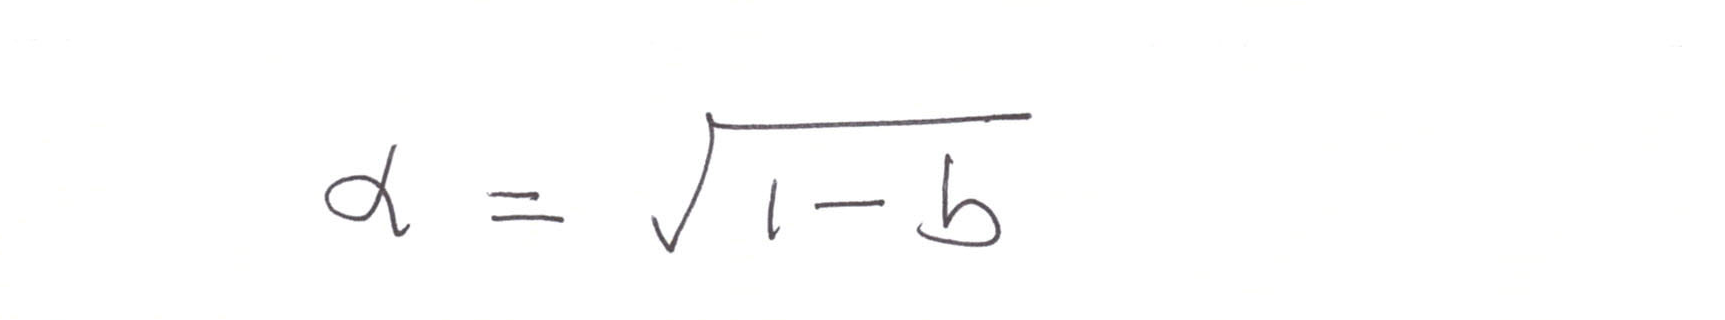 α = √(1 - b)